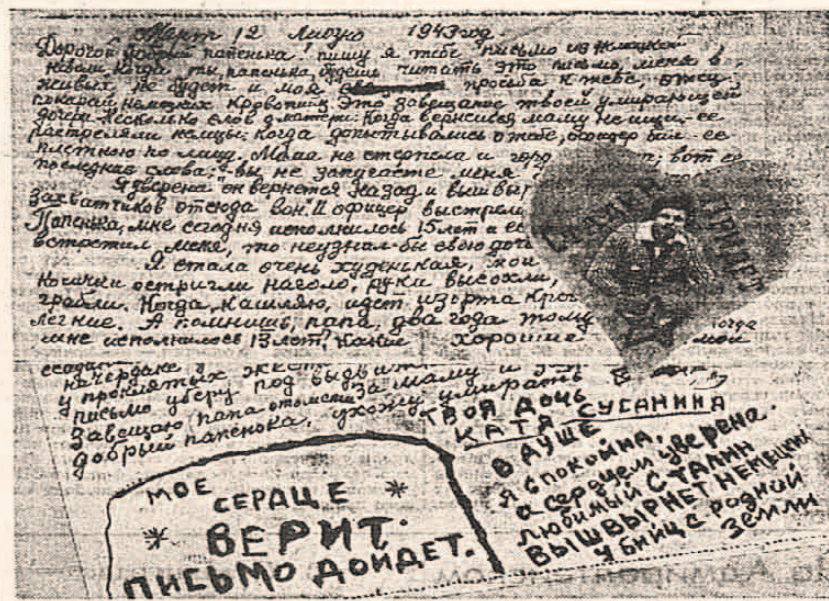 12 Лиозно 1943 год.
Дорогой добрый папенька! пишу я тебе письмо из немецкой
неволи. Когда ты, папенька, будешь читать это письмо, меня в
живых не будет и моя просьба к тебе, отец:
покарай немецких кровопийц. Это завещание твоей умирающей
дочери. Несколько слов о матери. Когда вернешься маму не ищи. ее
растреляли немцы. Когда допытывались о тебе, офицер бил ее
плеткою по лицу. Мама не стерпела и вот ее
последние слова: вы не запугаете меня
Я уверена он вернется назад и вышвыр
захватчиков отсюда вон. И офицер выстрел
Папенька, мне сегодня исполнилось 15 лет и ес
встретил меня, то неузнал-бы свою доч
Я стала очень худенькая, мои
косички остригли наголо, руки высохли,
грабли. Когда кашляю, идет изорта кров
легкие. А помнишь, папа, два года тому когда
мне исполнилось 13 лет? Какие хорошие мои
начердаке
у проклятых
письмо уберу под
Завещаю папа отомсти за маму и
добрый папенька, ухожу умирать
ПРИДЕТ
ТВОЯ ДОЧЬ
КАТЯ СУСАНИНА
В ДУШЕ
Я СПОКОЙНА,
а сердцем уверена.
любимый СТАЛИН
ВЫШВЫРНЕТ НЕМЕЦКИХ
УБИЙЦ С РОДНОЙ
ЗЕМЛИ
МОЕ
СЕРДЦЕ
ВЕРИТ.
ПИСЬМО ДОЙДЕТ.